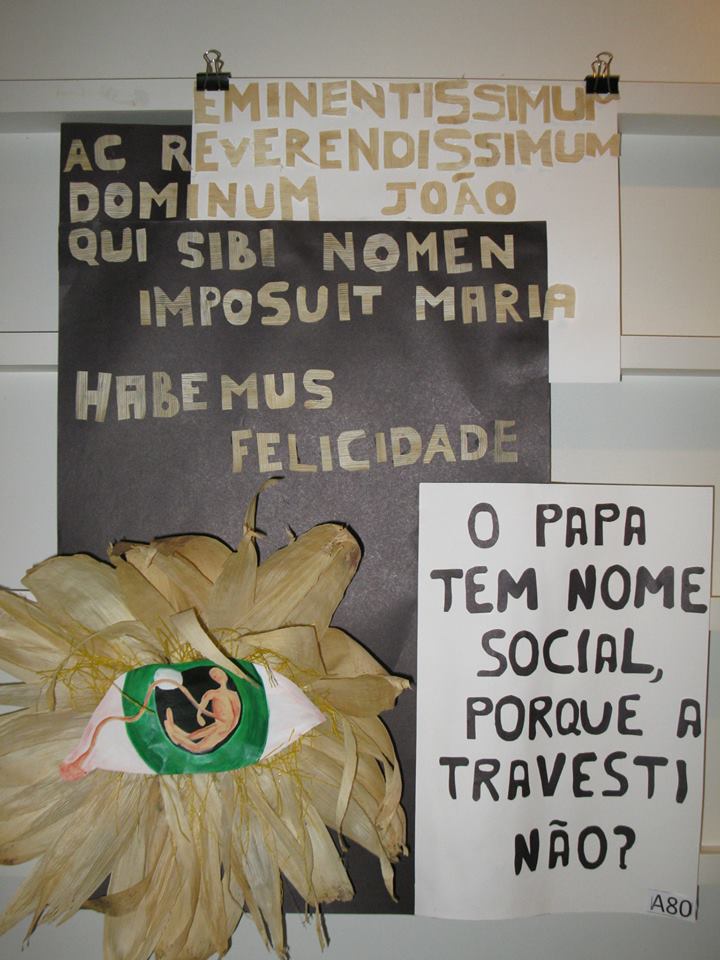 EMINENTISSIMUM
AC REVERENDISSIMUM
DOMINUM JOÃO
QUI SIBI NOMEN
IMPOSUIT MARIA
HABEMUS
FELICIDADE
O PAPA
TEM NOME
SOCIAL,
PORQUE A
TRAVESTI
NÃO?
A80